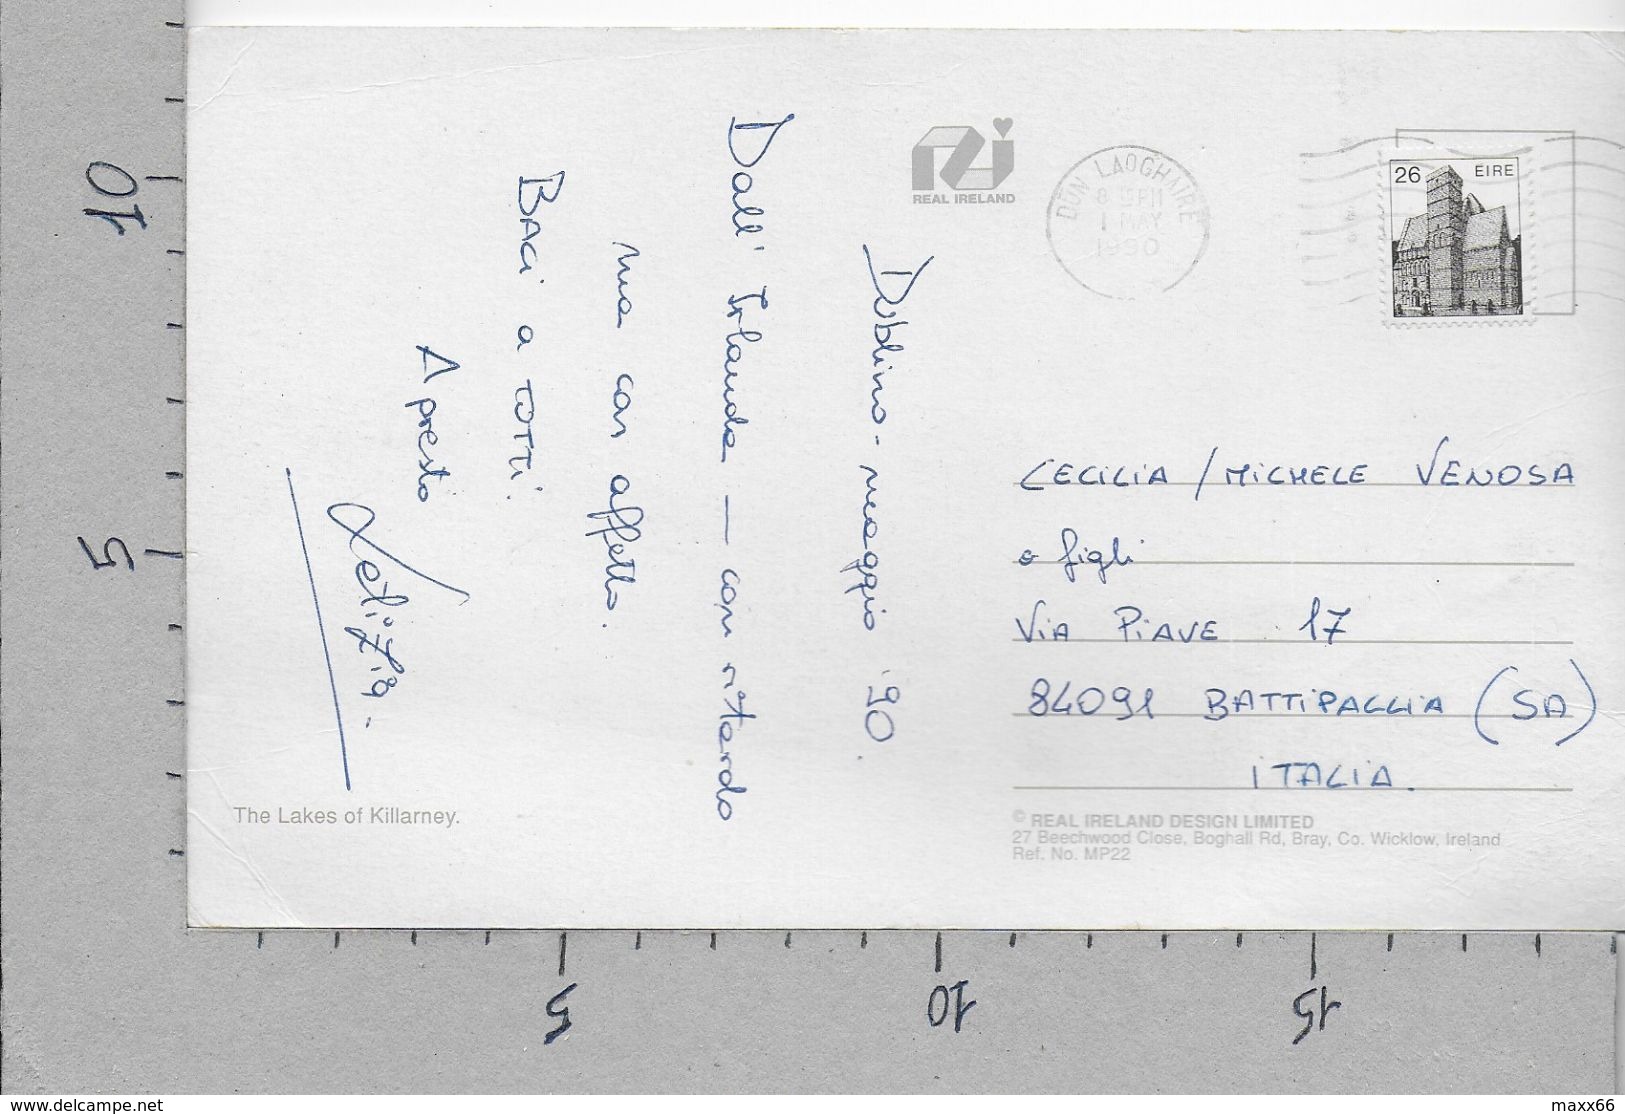 REAL IRELAND
DÚN LAOGHAIRE
1 MAY
1990
26 ÉIRE
Dublino - maggio '90.
Dall' Irlanda — con ritardo
ma con affetto.
BACI a TOTTI.
A presto
Letizia.
CECILIA / MICHELE VENOSA
e figli
VIA PIAVE 17
84091 BATTIPAGLIA (SA)
ITALIA.
The Lakes of Killarney.
© REAL IRELAND DESIGN LIMITED
27 Beechwood Close, Boghall Rd, Bray, Co. Wicklow, Ireland
Ref. No. MP22
10
5
5
10
15
www.delcampe.net
maxx66